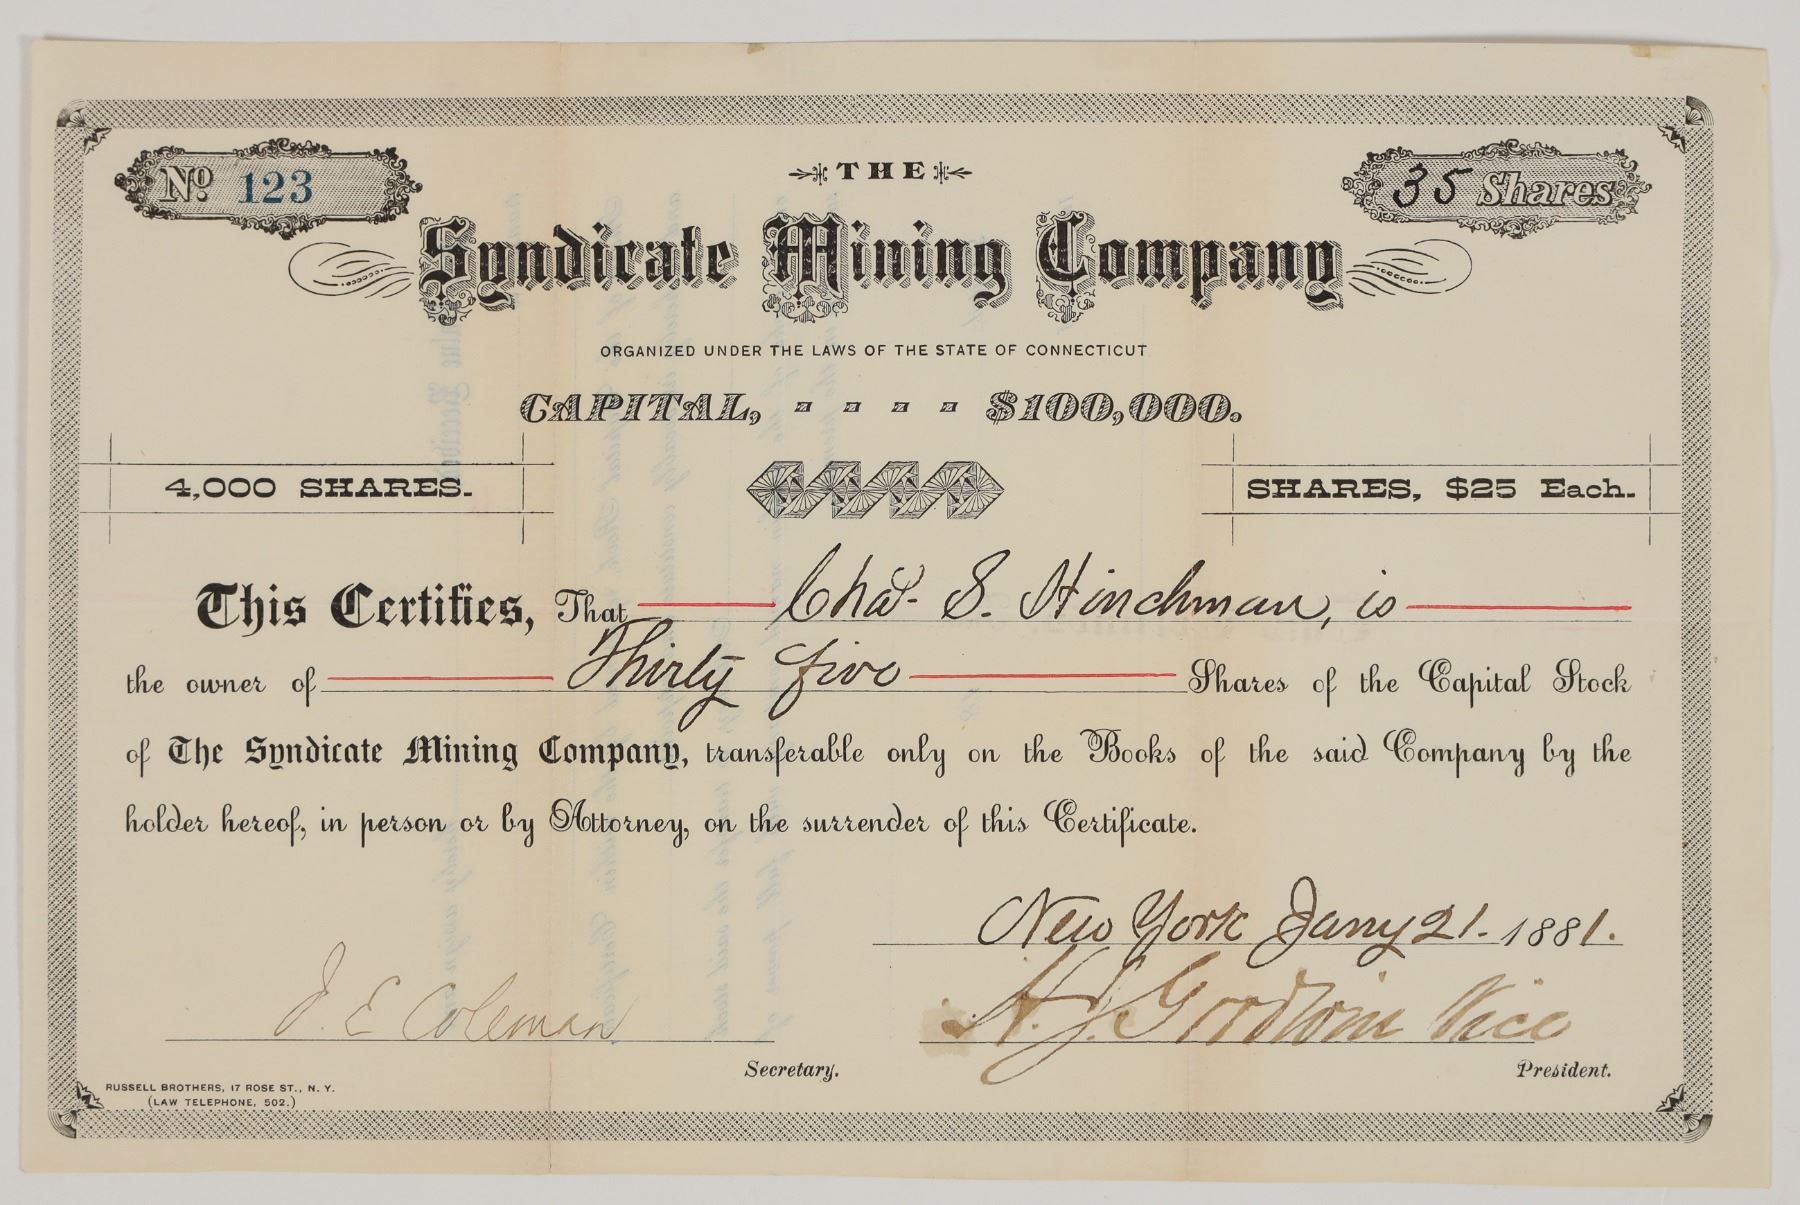 No. 123
THE
35 Shares
Syndicate Mining Company
ORGANIZED UNDER THE LAWS OF THE STATE OF CONNECTICUT
CAPITAL, - - - - $100,000.
4,000 SHARES.
SHARES, $25 Each.
This Certifies, That Chas. S. Hinchman, is
the owner of Thirty five Shares of the Capital Stock
of The Syndicate Mining Company, transferable only on the Books of the said Company by the
holder hereof, in person or by Attorney, on the surrender of this Certificate.
New York Jany 21. 1881.
J. E. Coleman
Secretary.
A. J. Goodwin Vice
President.
RUSSELL BROTHERS, 17 ROSE ST., N. Y.
(LAW TELEPHONE, 502.)